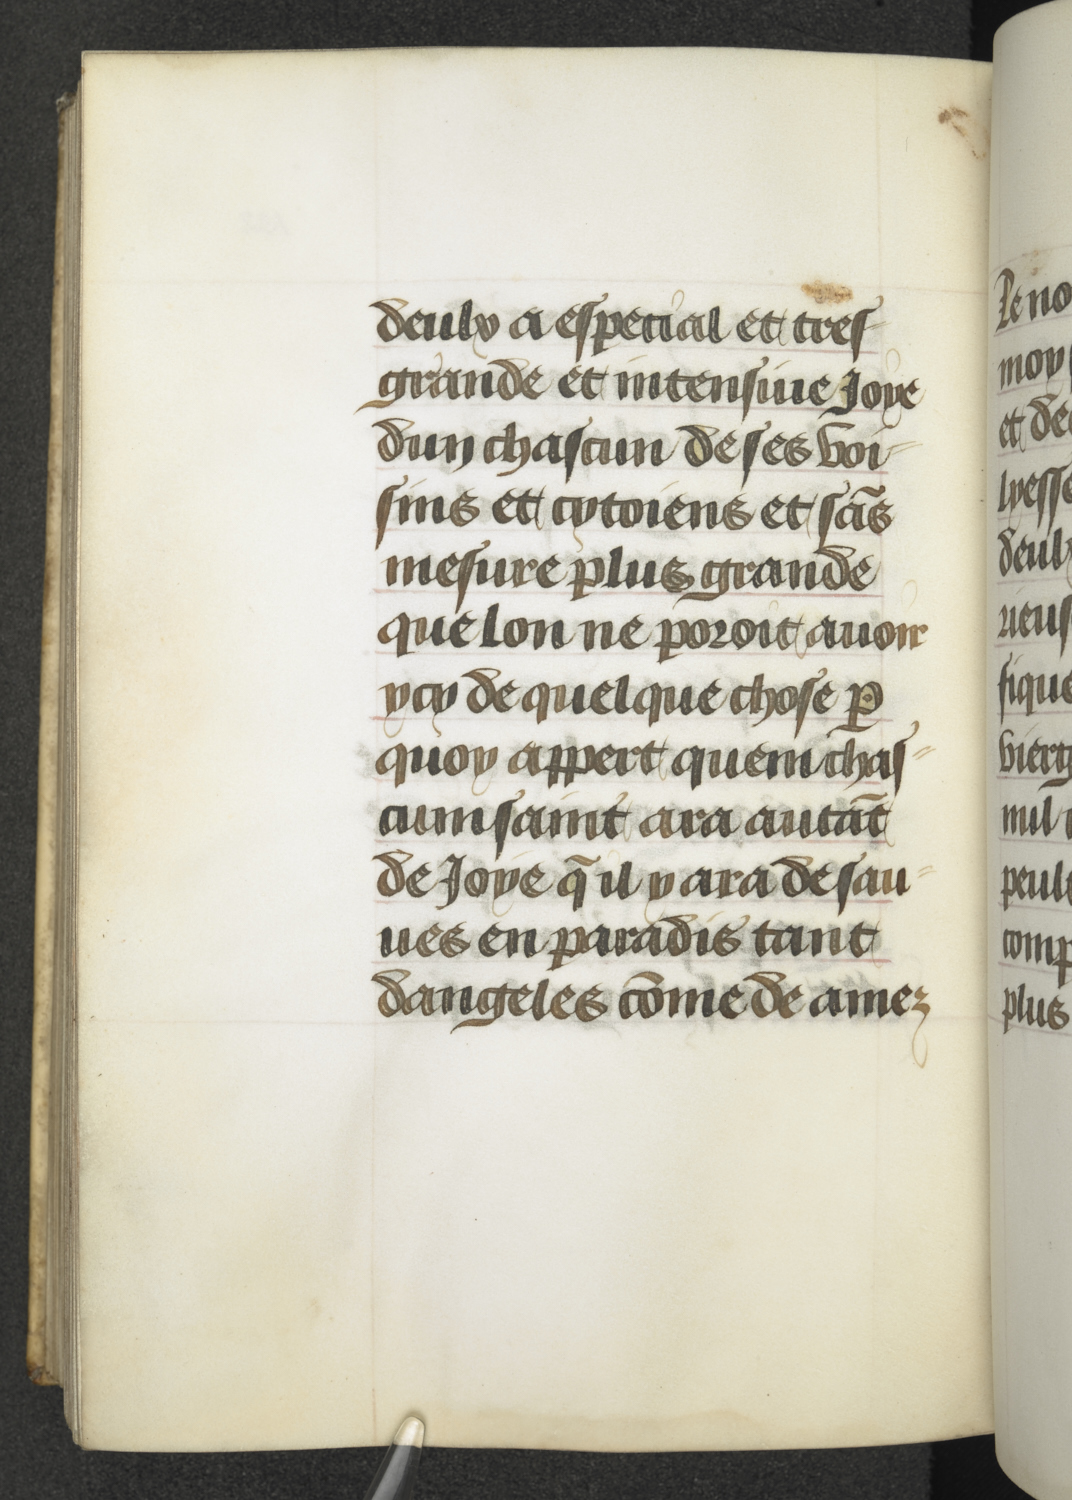 deulx a especial et tres
grande et intensiue Joye
dun chascun de ses voi
sins et cytoiens et sās
mesure plus grande
que lon ne poroit auoir
ycy de quelque chose ꝑ
quoy appert quem chas
cum saint ara autāt
de Joye q̄ il y ara de sau
ues en paradis tant
dangeles cōme de amez
Le no
moy
et de
lyesse
deulx
rieus
fique
vierg
mil
peult
comp
plus